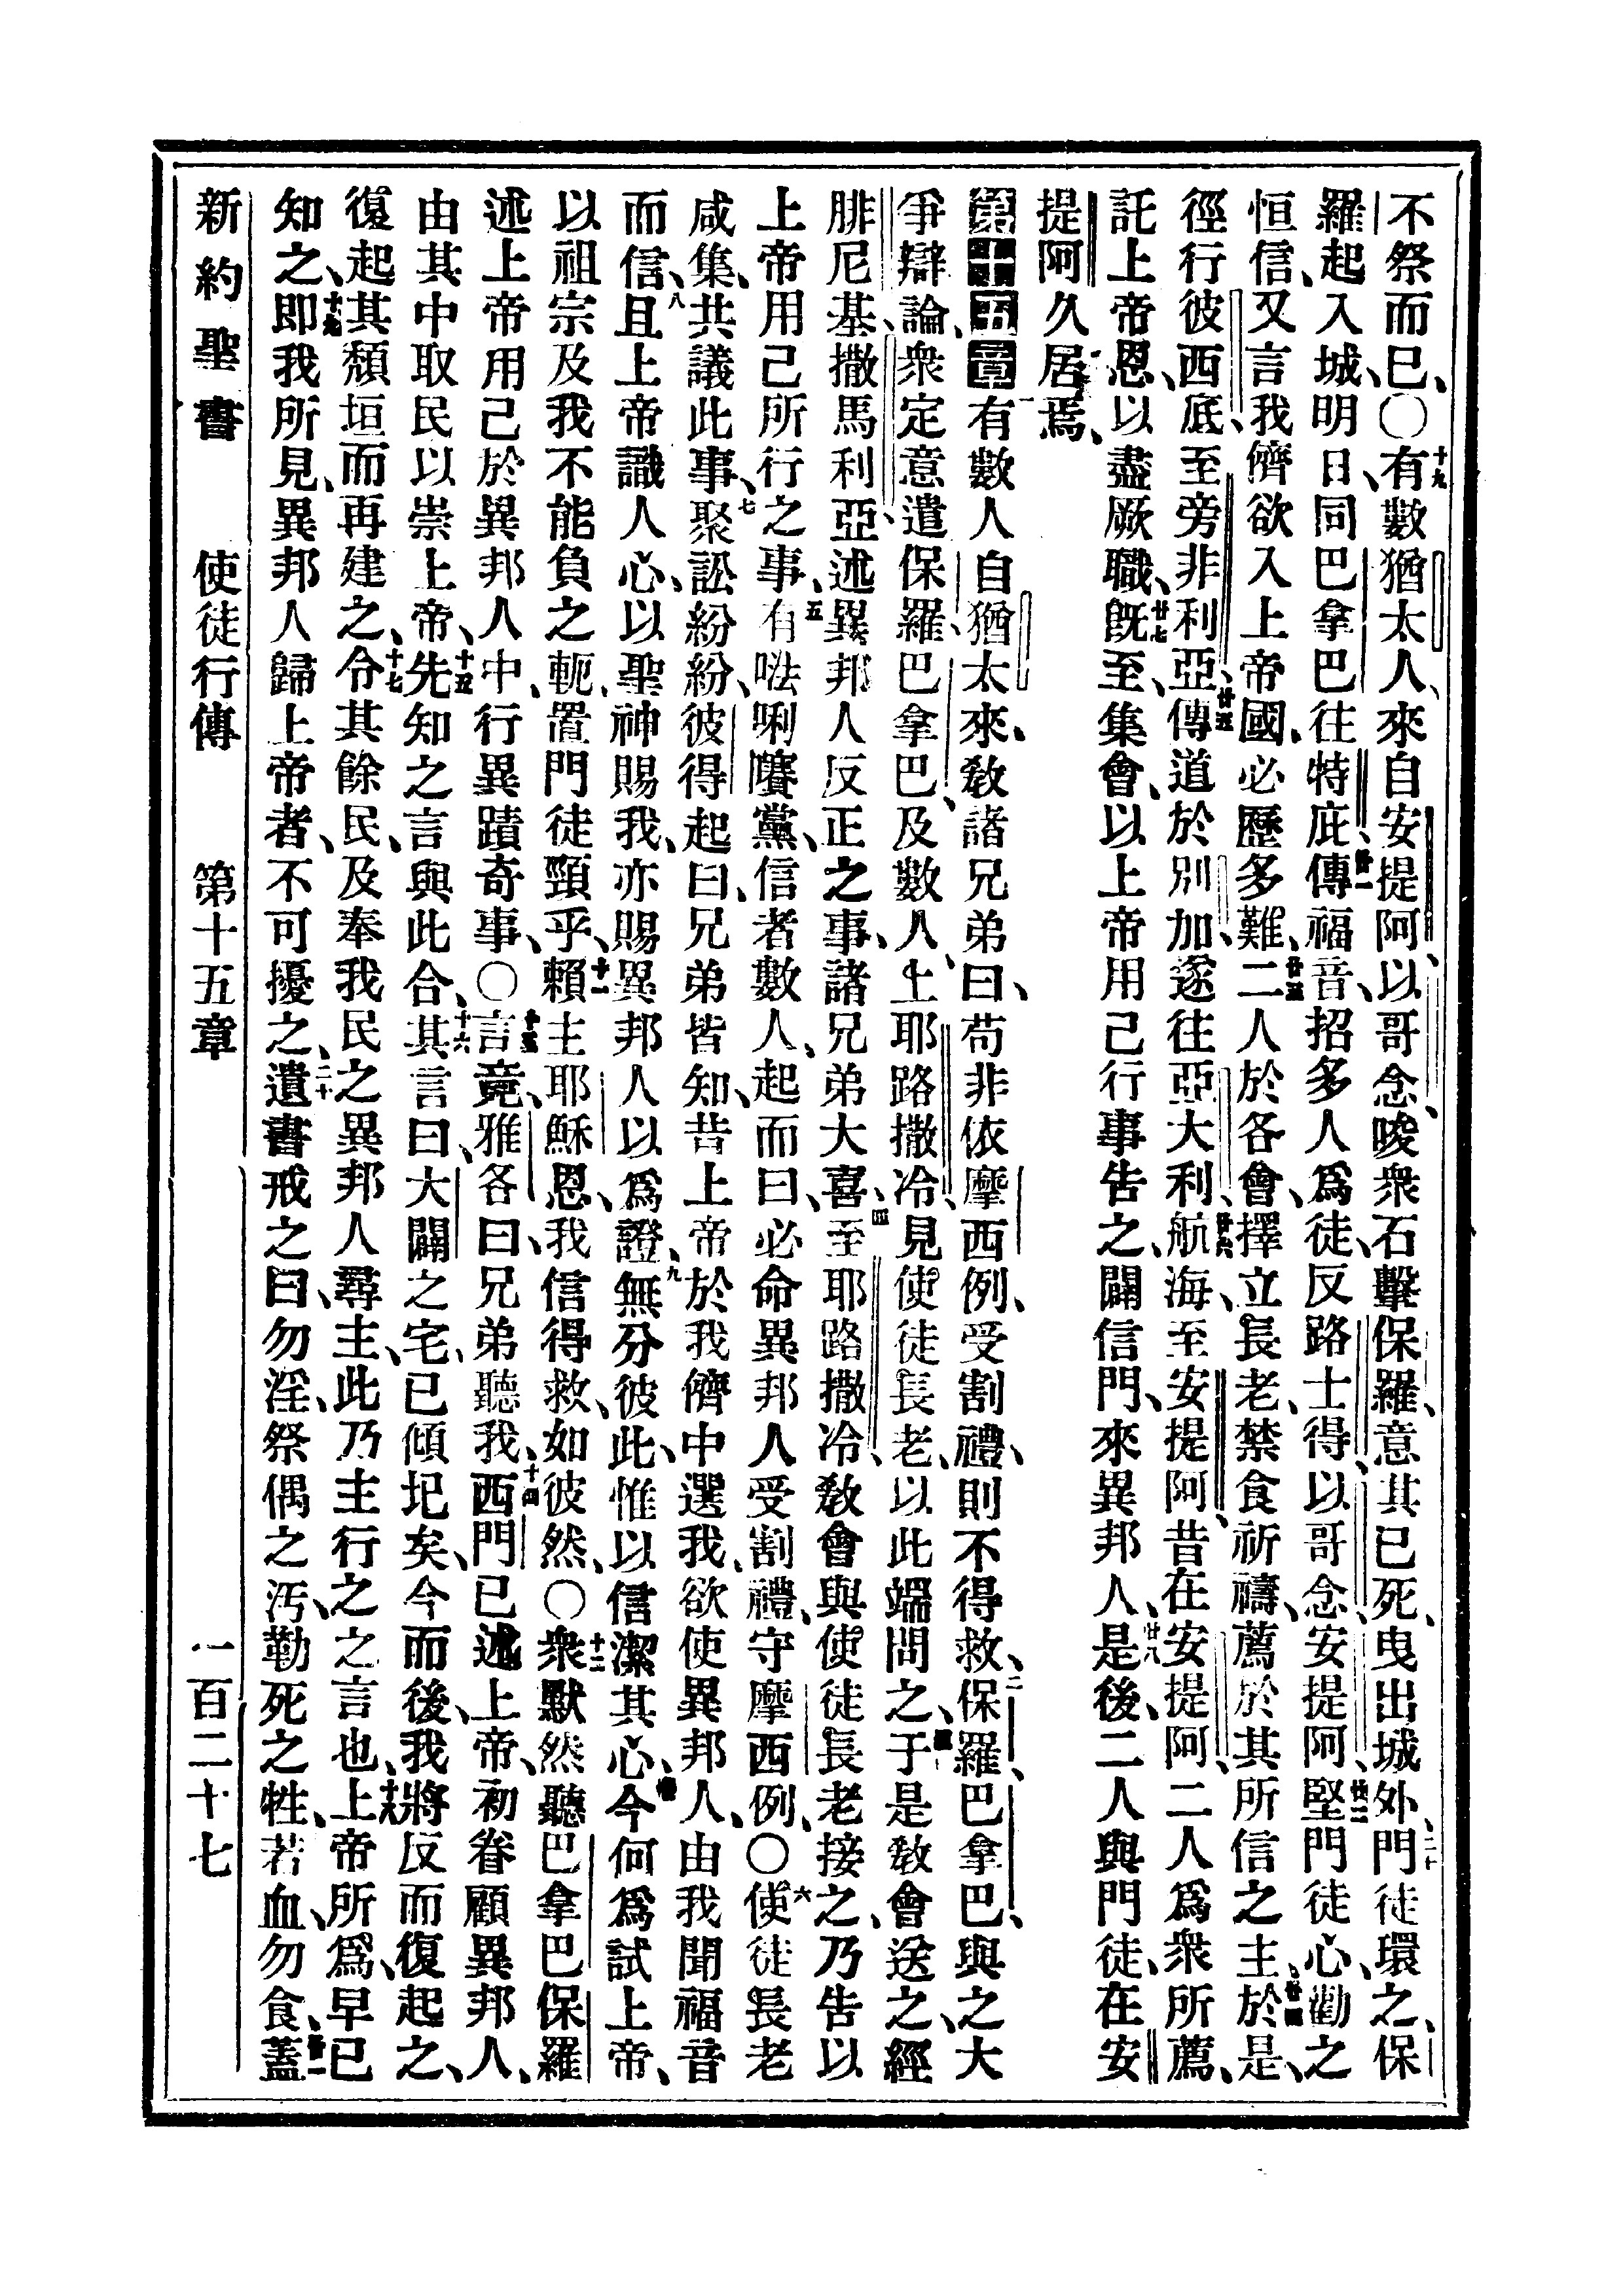 不祭而已、〇十九有數猶太人、來自安提阿、以哥念、唆衆石擊保羅、意其已死、曳出城外、二十門徒環之、保
羅起入城、明日、同巴拿巴往特庇、廿一傳福音、招多人爲徒、反路士得、以哥念、安提阿、廿二堅門徒心、勸之
恒信、又言我儕欲入上帝國、必歷多難、廿三二人於各會、擇立長老、禁食祈禱、薦於其所信之主、廿四於是、
徑行彼西底、至旁非利亞、廿五傳道於別加、遂往亞大利、廿六航海、至安提阿、昔在安提阿、二人爲衆所薦、
託上帝恩、以盡厥職、廿七旣至、集會、以上帝用己行事告之、闢信門、來異邦人、廿八是後、二人與門徒、在安
提阿久居焉、
第十五章有數人自猶太來、敎諸兄弟曰、苟非依摩西例、受割禮、則不得救、二保羅、巴拿巴、與之大
爭辯論、衆定意遣保羅、巴拿巴、及數人、上耶路撒冷、見使徒長老、以此端問之、三于是敎會送之、經
腓尼基、撒馬利亞、述異邦人反正之事、諸兄弟大喜、四至耶路撒冷、敎會與使徒長老接之、乃告以
上帝用己所行之事、五有㕸唎㘔黨、信者數人、起而曰、必命異邦人受割禮、守摩西例、〇六使徒長老
咸集、共議此事、七聚訟紛紛、彼得起曰、兄弟皆知、昔上帝於我儕中選我、欲使異邦人、由我聞福音
而信、八且上帝識人心、以聖神賜我、亦賜異邦人以爲證、九無分彼此、惟以信潔其心、十今何爲試上帝、
以祖宗及我不能負之軛、置門徒頸乎、十一賴主耶穌恩、我信得救、如彼然、〇十二衆默然聽巴拿巴保羅
述上帝用己於異邦人中、行異蹟奇事、〇十三言竟、雅各曰、兄弟聽我、十四西門已述上帝、初眷顧異邦人、
由其中取民以崇上帝、十五先知之言與此合、十六其言曰、大闢之宅、已傾圮矣、今而後、我將反而復起之、
復起其頹垣而再建之、十七令其餘民、及奉我民之異邦人尋主、此乃主行之之言也、十八上帝所爲、早已
知之、十九卽我所見、異邦人歸上帝者、不可擾之、二十遺書戒之曰、勿淫、祭偶之汚、勒死之牲、若血、勿食、廿一蓋
新約聖書　使徒行傳　第十五章　一百二十七